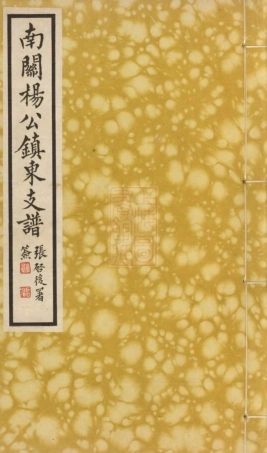 南關楊公鎮東支譜
張啓後署
簽